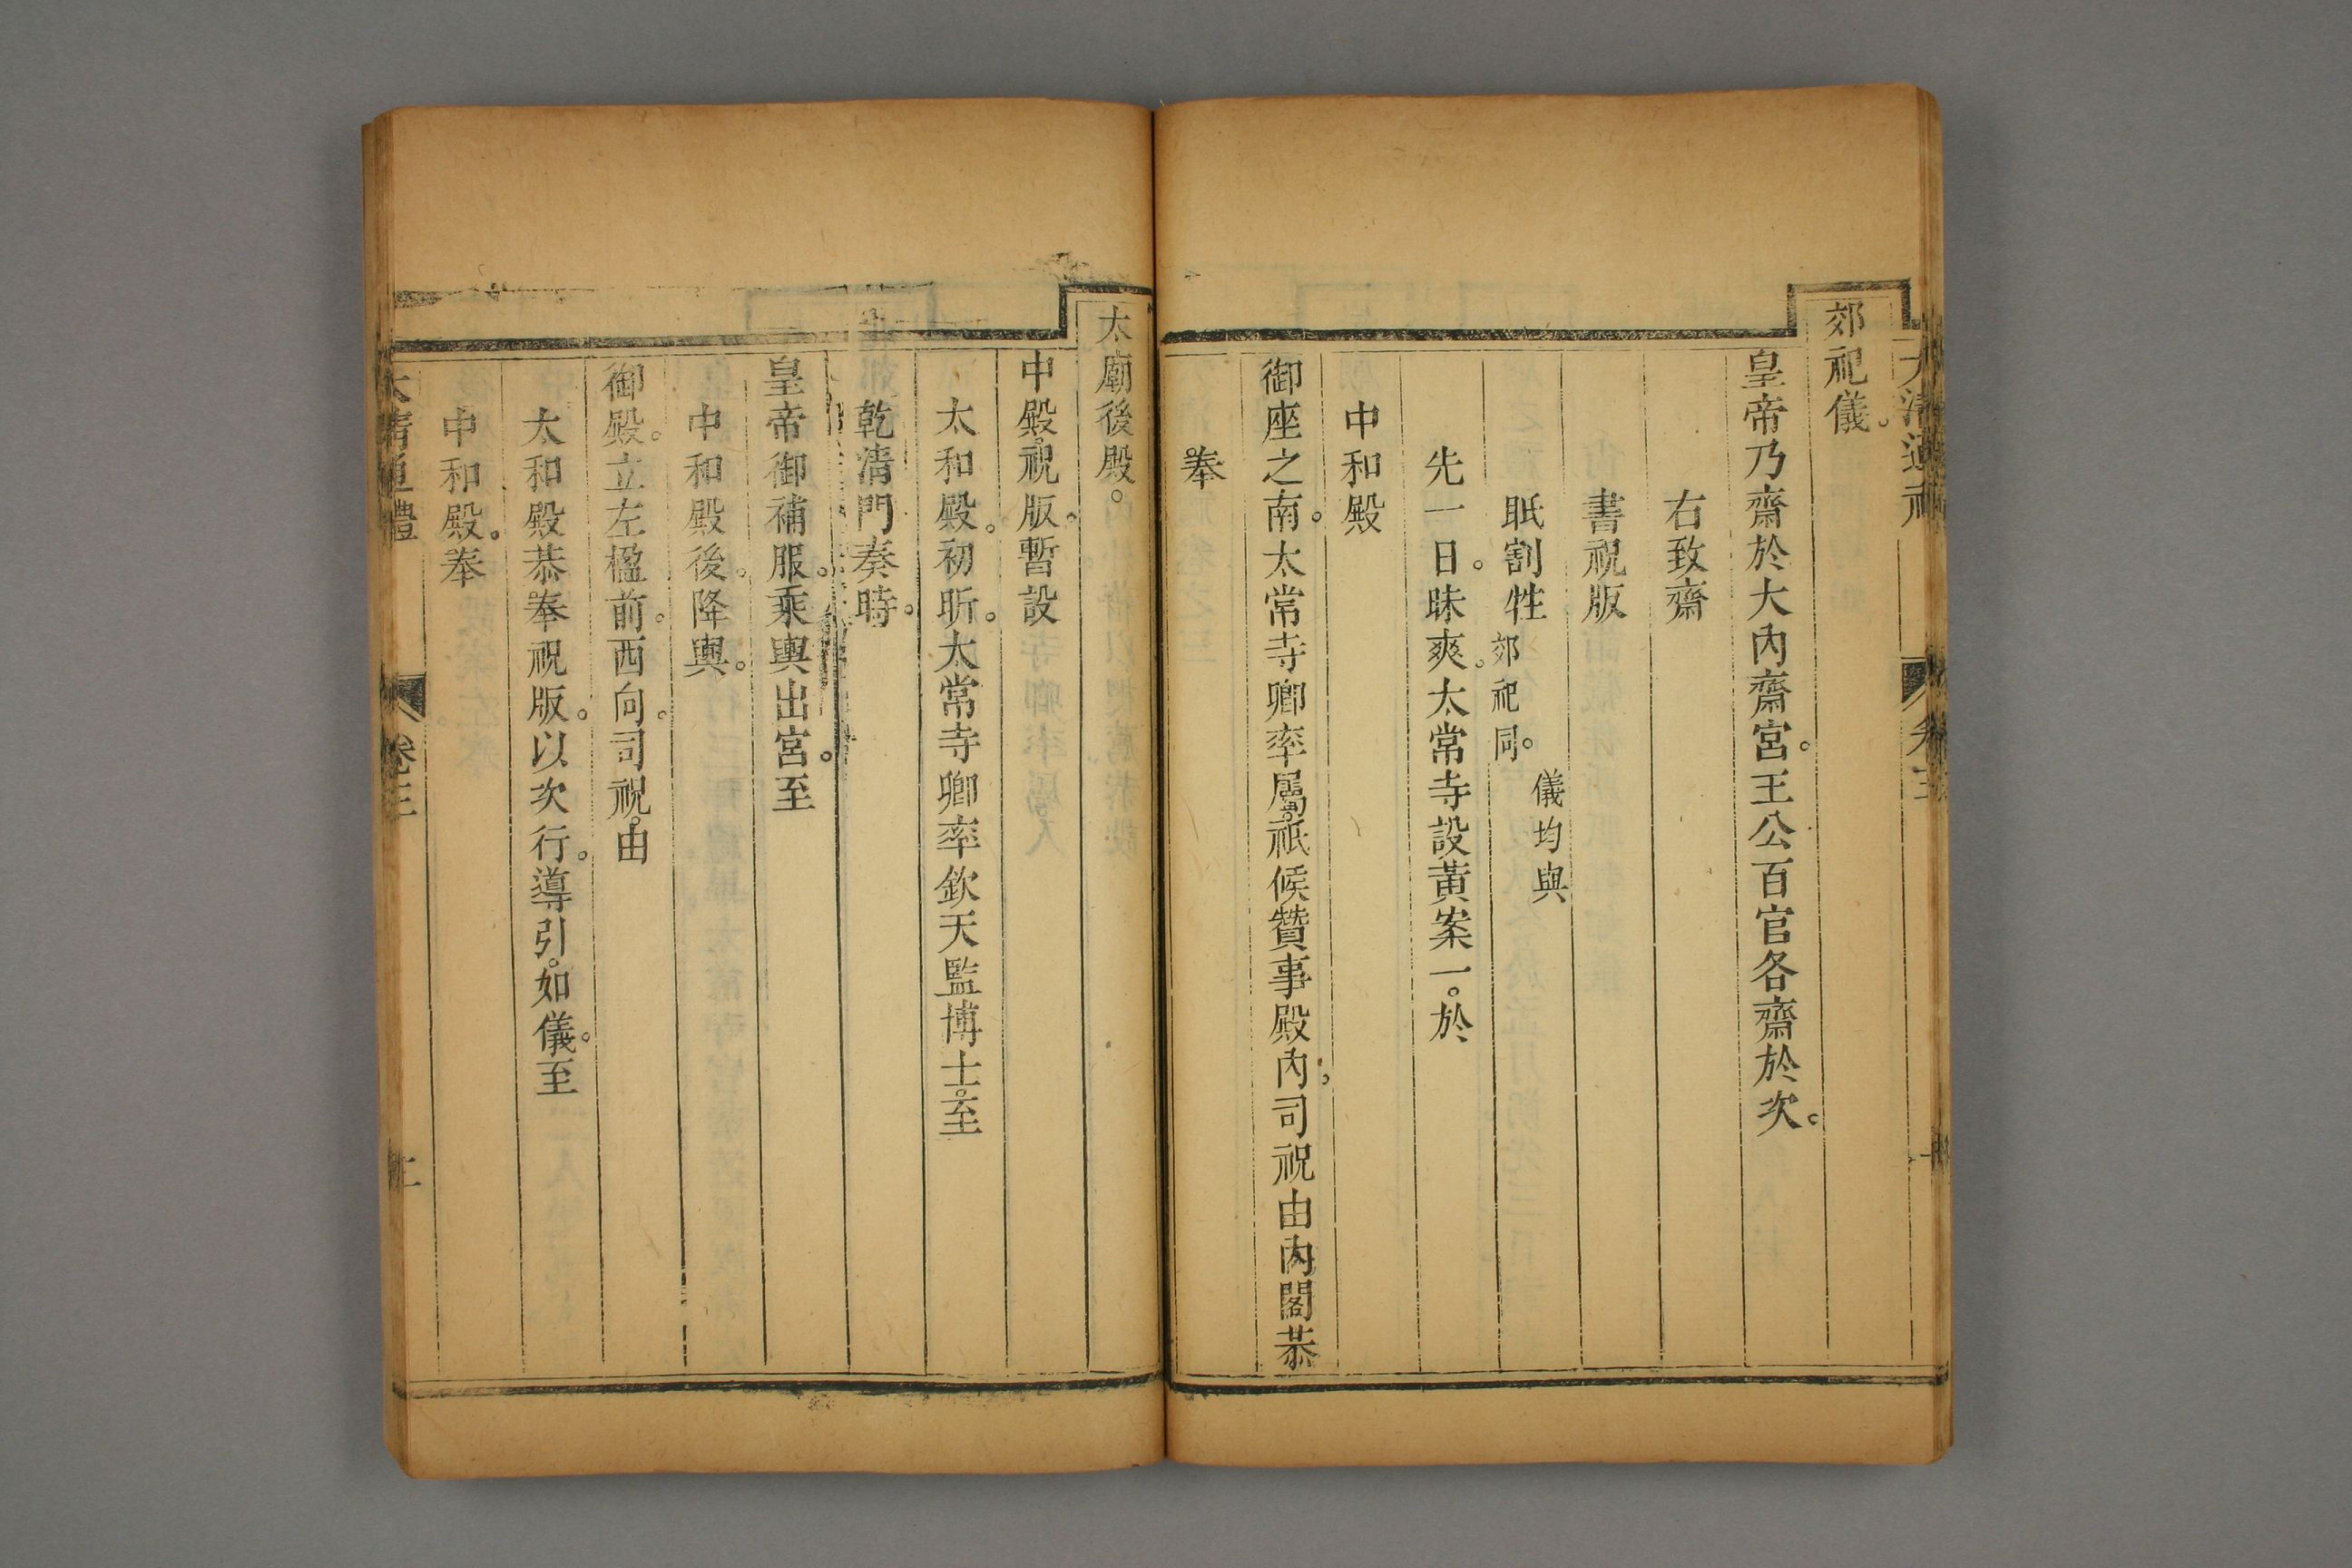 郊祀儀。
皇帝乃齋於大內齋宮。王公百官各齋於次。
右致齋
書祝版
眡割牲儀均與郊祀同。
先一日。昧爽。太常寺設黃案一。於
中和殿
御座之南。太常寺卿率屬。祇候贊事殿內。司祝由內閣恭
奉
太廟後殿。
中殿。祝版。暫設
太和殿。初昕。太常寺卿率欽天監博士。至
乾淸門奏時。
皇帝御補服。乘輿出宮。至
中和殿後。降輿。
御殿。立左楹前。西向。司祝。由
太和殿恭奉祝版。以次行。導引。如儀。至
中和殿。奉
大清通禮 卷三